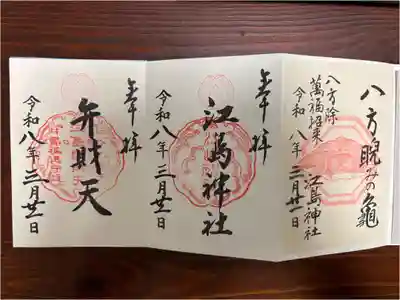 八方睨みの龜
江島神社
八方除
萬福招来
令和八年三月廿一日
奉拝
江島神社
令和八年三月廿一日
奉拝
弁財天
令和八年三月廿一日